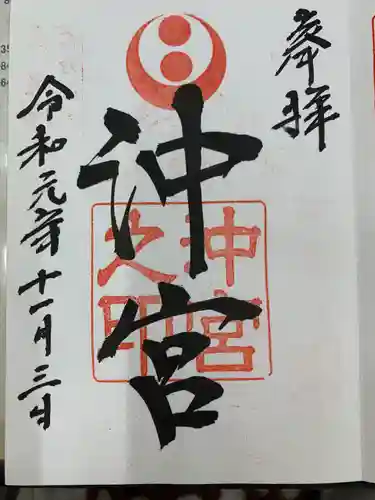 奉拝
沖宮
沖宮之印
令和元年十一月三日